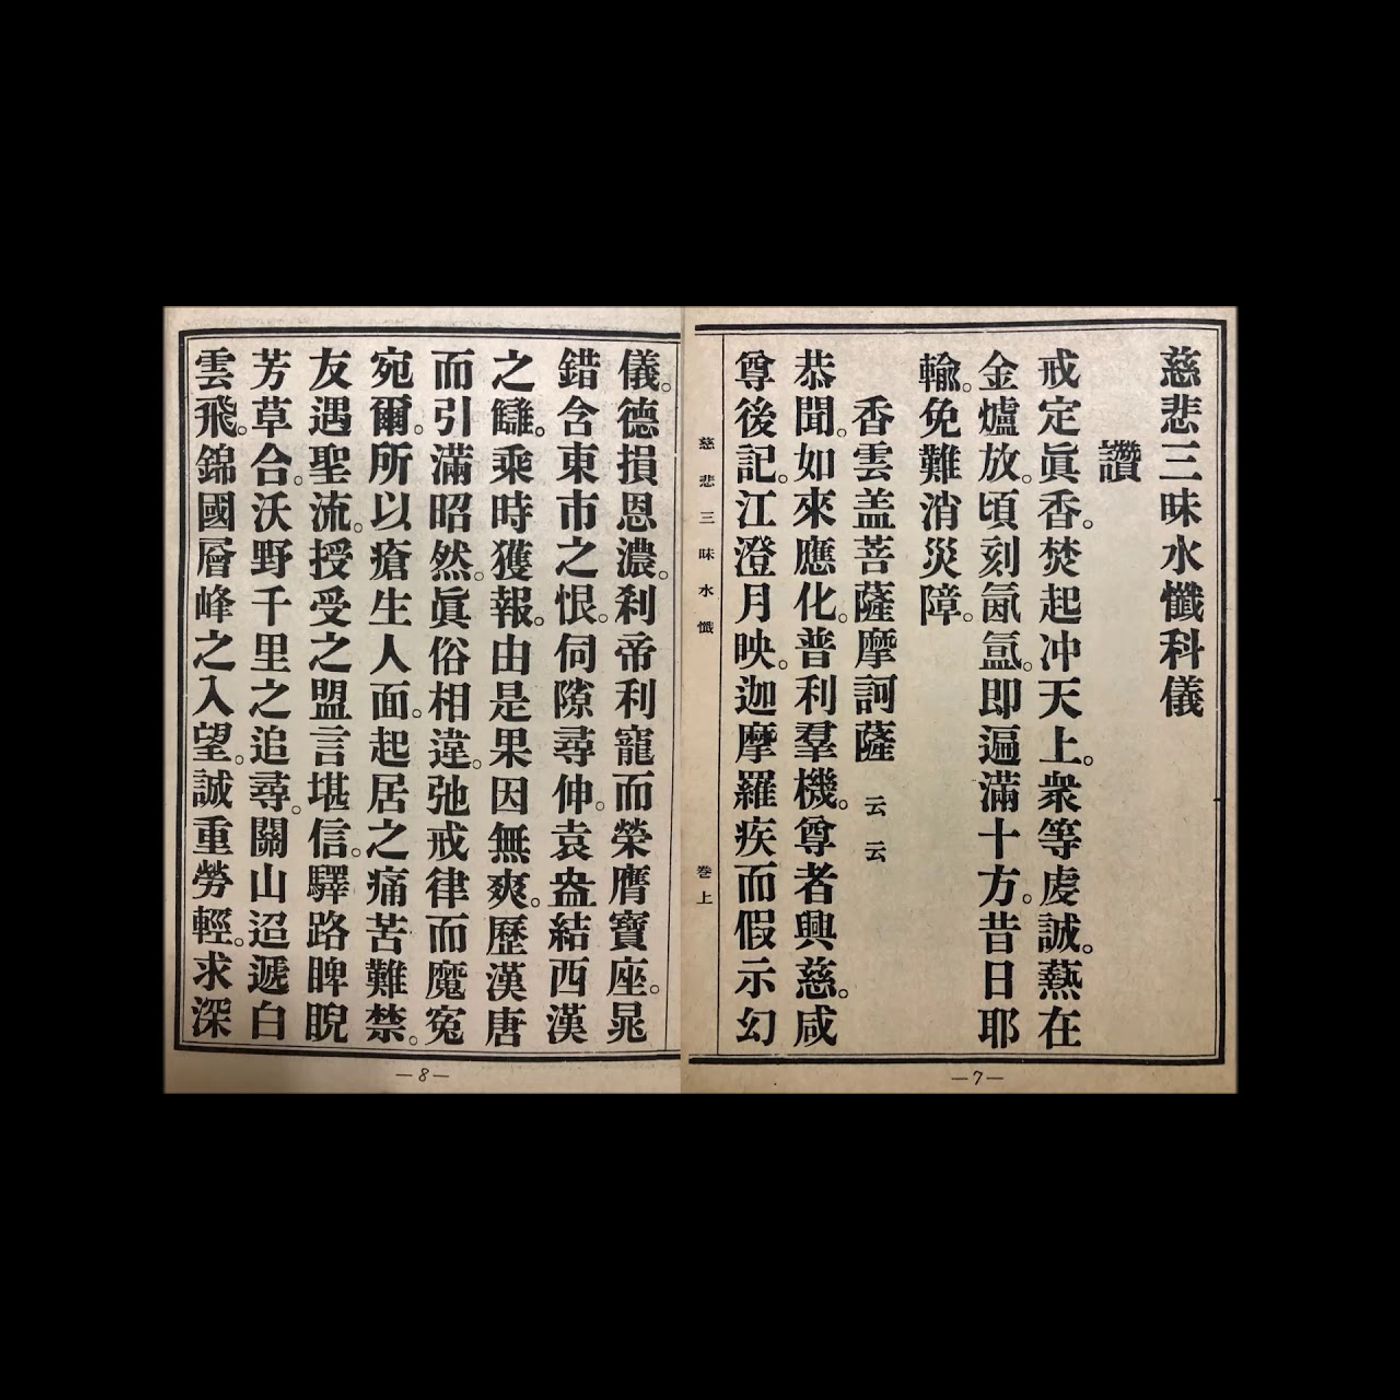 慈悲三昧水懺科儀
讚
戒定眞香。焚起冲天上。衆等虔誠。爇在
金爐放。頃刻氤氳。即遍滿十方。昔日耶
輸。免難消災障。
香雲盖菩薩摩訶薩 云云
恭聞。如來應化。普利羣機。尊者興慈。咸
尊後記。江澄月映。迦摩羅疾而假示幻
慈悲三昧水懺 卷上
—7—
儀。德損恩濃。利帝利寵而榮膺寶座。晁
錯含東市之恨。伺隙尋伸。袁盎結西漢
之讎。乘時獲報。由是果因無爽。歷漢唐
而引滿昭然。眞俗相違。弛戒律而魔寃
宛爾。所以瘡生人面。起居之痛苦難禁。
友遇聖流。授受之盟言堪信。驛路睥睨
芳草合。沃野千里之追尋。關山迢遞白
雲飛。錦國層峰之入望。誠重勞輕。求深
—8—